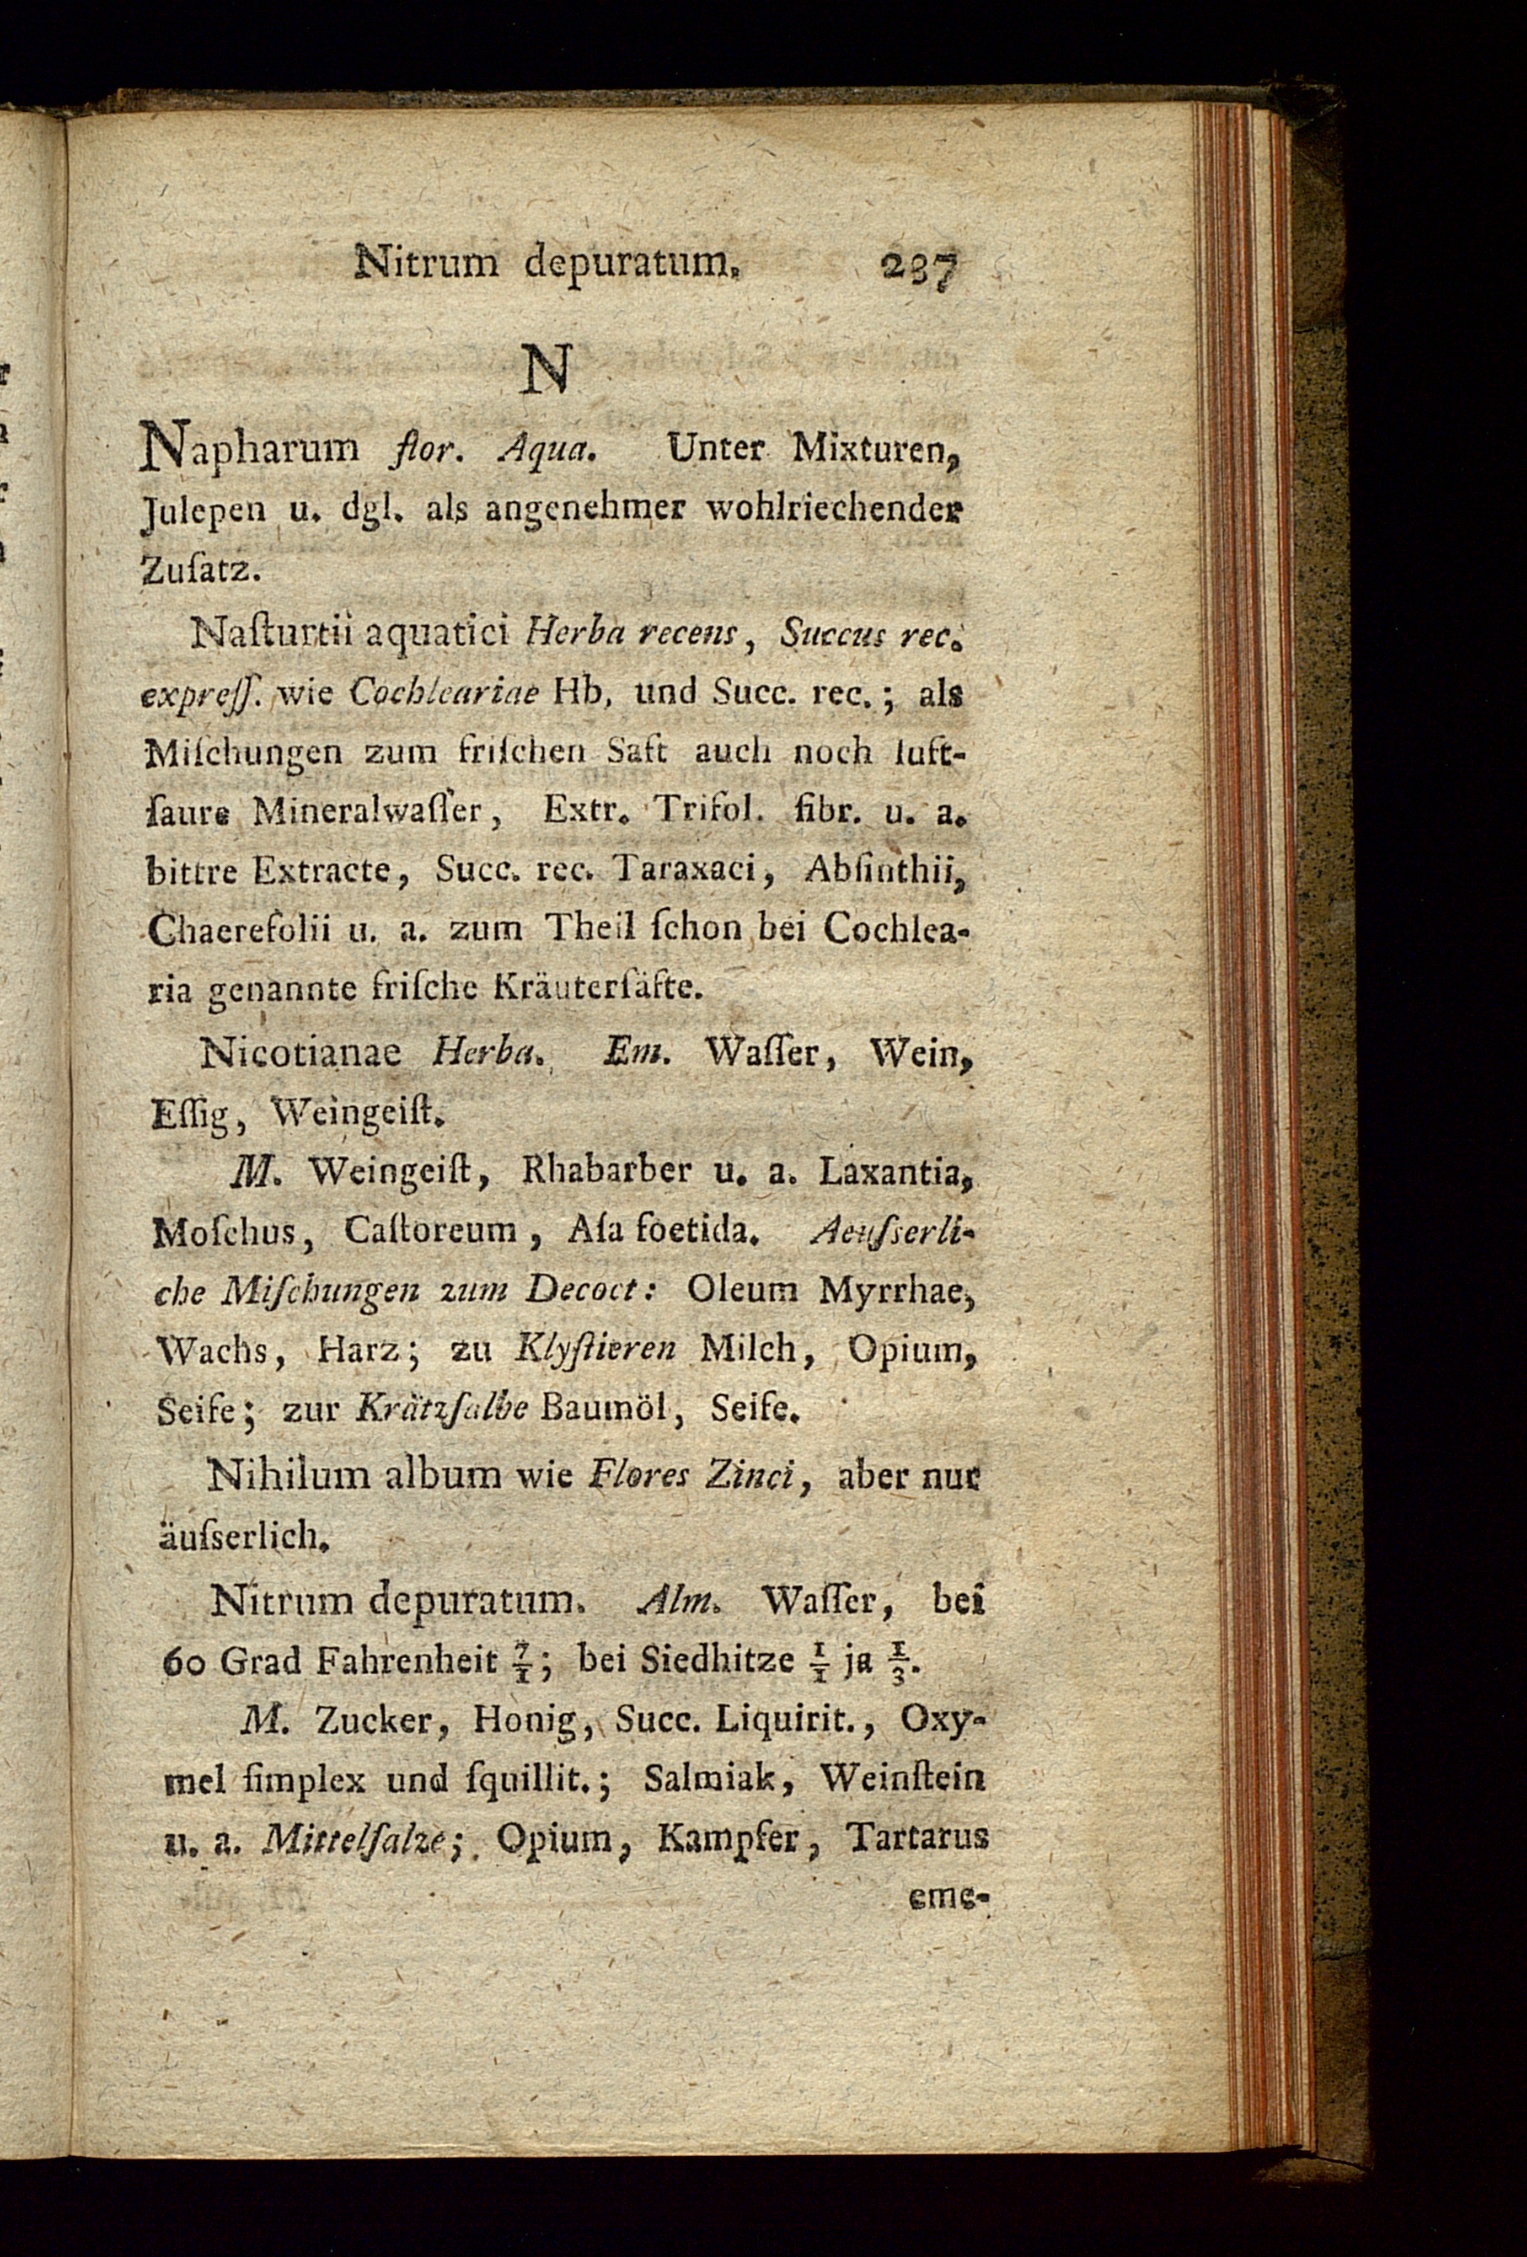 Nitrum depuratum. 237
N
Napharum flor. Aqua. Unter Mixturen,
Julepen u. dgl. als angenehmer wohlriechender
Zuſatz.
Naſturtii aquatici Herba recens, Succus rec.
expreſſ. wie Cochleariae Hb. und Succ. rec.; als
Miſchungen zum friſchen Saft auch noch luft-
ſaure Mineralwaſſer, Extr. Trifol. fibr. u. a.
bittre Extracte, Succ. rec. Taraxaci, Abſinthii,
Chaerefolii u. a. zum Theil ſchon bei Cochlea-
ria genannte friſche Kräuterſäfte.
Nicotianae Herba. Em. Waſſer, Wein,
Eſſig, Weingeiſt.
M. Weingeiſt, Rhabarber u. a. Laxantia,
Moſchus, Caſtoreum, Aſa foetida. Aeuſserli-
che Miſchungen zum Decoct: Oleum Myrrhae,
Wachs, Harz; zu Klyſtieren Milch, Opium,
Seife; zur Krätzſalbe Baumöl, Seife.
Nihilum album wie Flores Zinci, aber nur
äuſserlich.
Nitrum depuratum. Alm. Waſſer, bei
60 Grad Fahrenheit 7/1; bei Siedhitze 1/1 ja 1/3.
M. Zucker, Honig, Succ. Liquirit., Oxy-
mel ſimplex und ſquillit.; Salmiak, Weinſtein
u. a. Mittelſalze; Opium, Kampfer, Tartarus
eme-